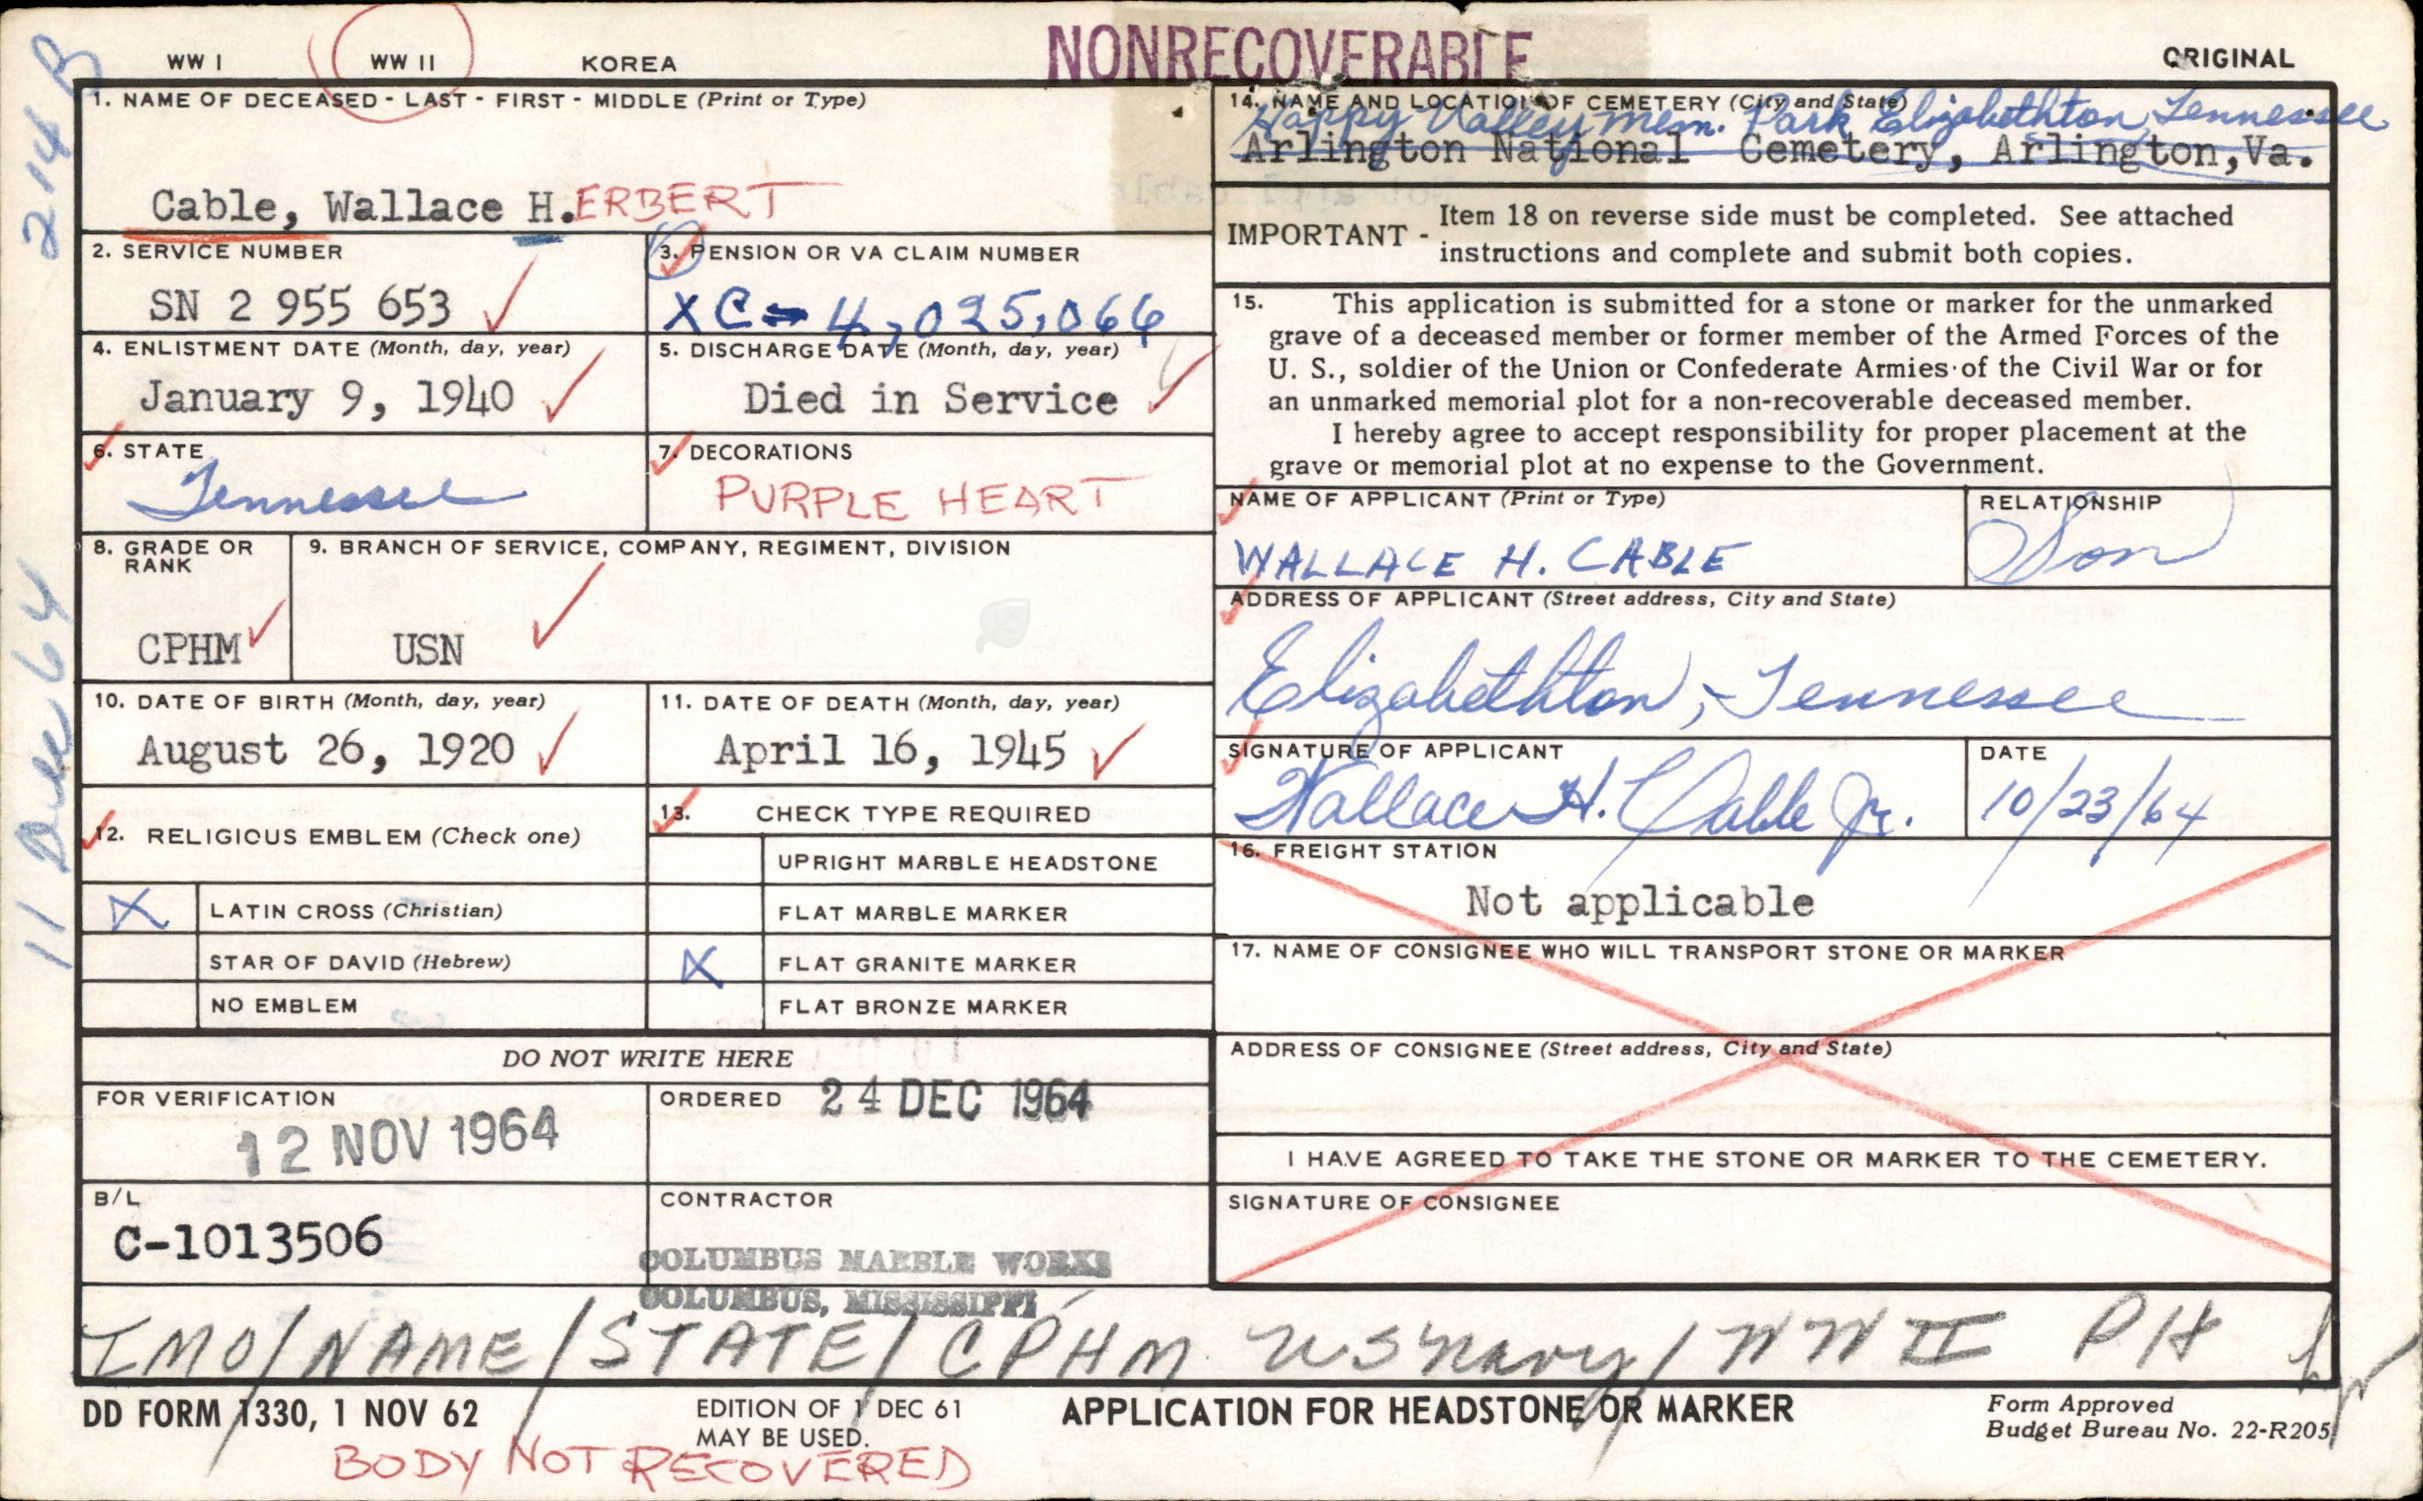 NONRECOVERABLE
WW I WW II KOREA ORIGINAL
214 B
11 Dec 64
1. NAME OF DECEASED - LAST - FIRST - MIDDLE (Print or Type)
Cable, Wallace H.ERBERT
2. SERVICE NUMBER
SN 2 955 653
3. PENSION OR VA CLAIM NUMBER
XC-4,025,066
4. ENLISTMENT DATE (Month, day, year)
January 9, 1940
5. DISCHARGE DATE (Month, day, year)
Died in Service
6. STATE
Tennessee
7. DECORATIONS
PURPLE HEART
8. GRADE OR
RANK
CPHM
9. BRANCH OF SERVICE, COMPANY, REGIMENT, DIVISION
USN
10. DATE OF BIRTH (Month, day, year)
August 26, 1920
11. DATE OF DEATH (Month, day, year)
April 16, 1945
12. RELIGIOUS EMBLEM (Check one)
X LATIN CROSS (Christian)
STAR OF DAVID (Hebrew)
NO EMBLEM
13. CHECK TYPE REQUIRED
UPRIGHT MARBLE HEADSTONE
FLAT MARBLE MARKER
X FLAT GRANITE MARKER
FLAT BRONZE MARKER
DO NOT WRITE HERE
FOR VERIFICATION
12 NOV 1964
ORDERED 24 DEC 1964
B/L
C-1013506
CONTRACTOR
COLUMBUS MARBLE WORKS
COLUMBUS, MISSISSIPPI
14. NAME AND LOCATION OF CEMETERY (City and State)
Happy Valley Mem. Park Elizabethton, Tennessee
Arlington National Cemetery, Arlington,Va.
IMPORTANT - Item 18 on reverse side must be completed. See attached
instructions and complete and submit both copies.
15. This application is submitted for a stone or marker for the unmarked
grave of a deceased member or former member of the Armed Forces of the
U. S., soldier of the Union or Confederate Armies of the Civil War or for
an unmarked memorial plot for a non-recoverable deceased member.
I hereby agree to accept responsibility for proper placement at the
grave or memorial plot at no expense to the Government.
NAME OF APPLICANT (Print or Type)
WALLACE H. CABLE
RELATIONSHIP
Son
ADDRESS OF APPLICANT (Street address, City and State)
Elizabethton, Tennessee
SIGNATURE OF APPLICANT
Wallace H. Cable Jr.
DATE
10/23/64
16. FREIGHT STATION
Not applicable
17. NAME OF CONSIGNEE WHO WILL TRANSPORT STONE OR MARKER
ADDRESS OF CONSIGNEE (Street address, City and State)
I HAVE AGREED TO TAKE THE STONE OR MARKER TO THE CEMETERY.
SIGNATURE OF CONSIGNEE
IMO/NAME/STATE/CPHM US Navy/WW II PH
DD FORM 1330, 1 NOV 62
EDITION OF 1 DEC 61
MAY BE USED.
APPLICATION FOR HEADSTONE OR MARKER
Form Approved
Budget Bureau No. 22-R205
BODY NOT RECOVERED